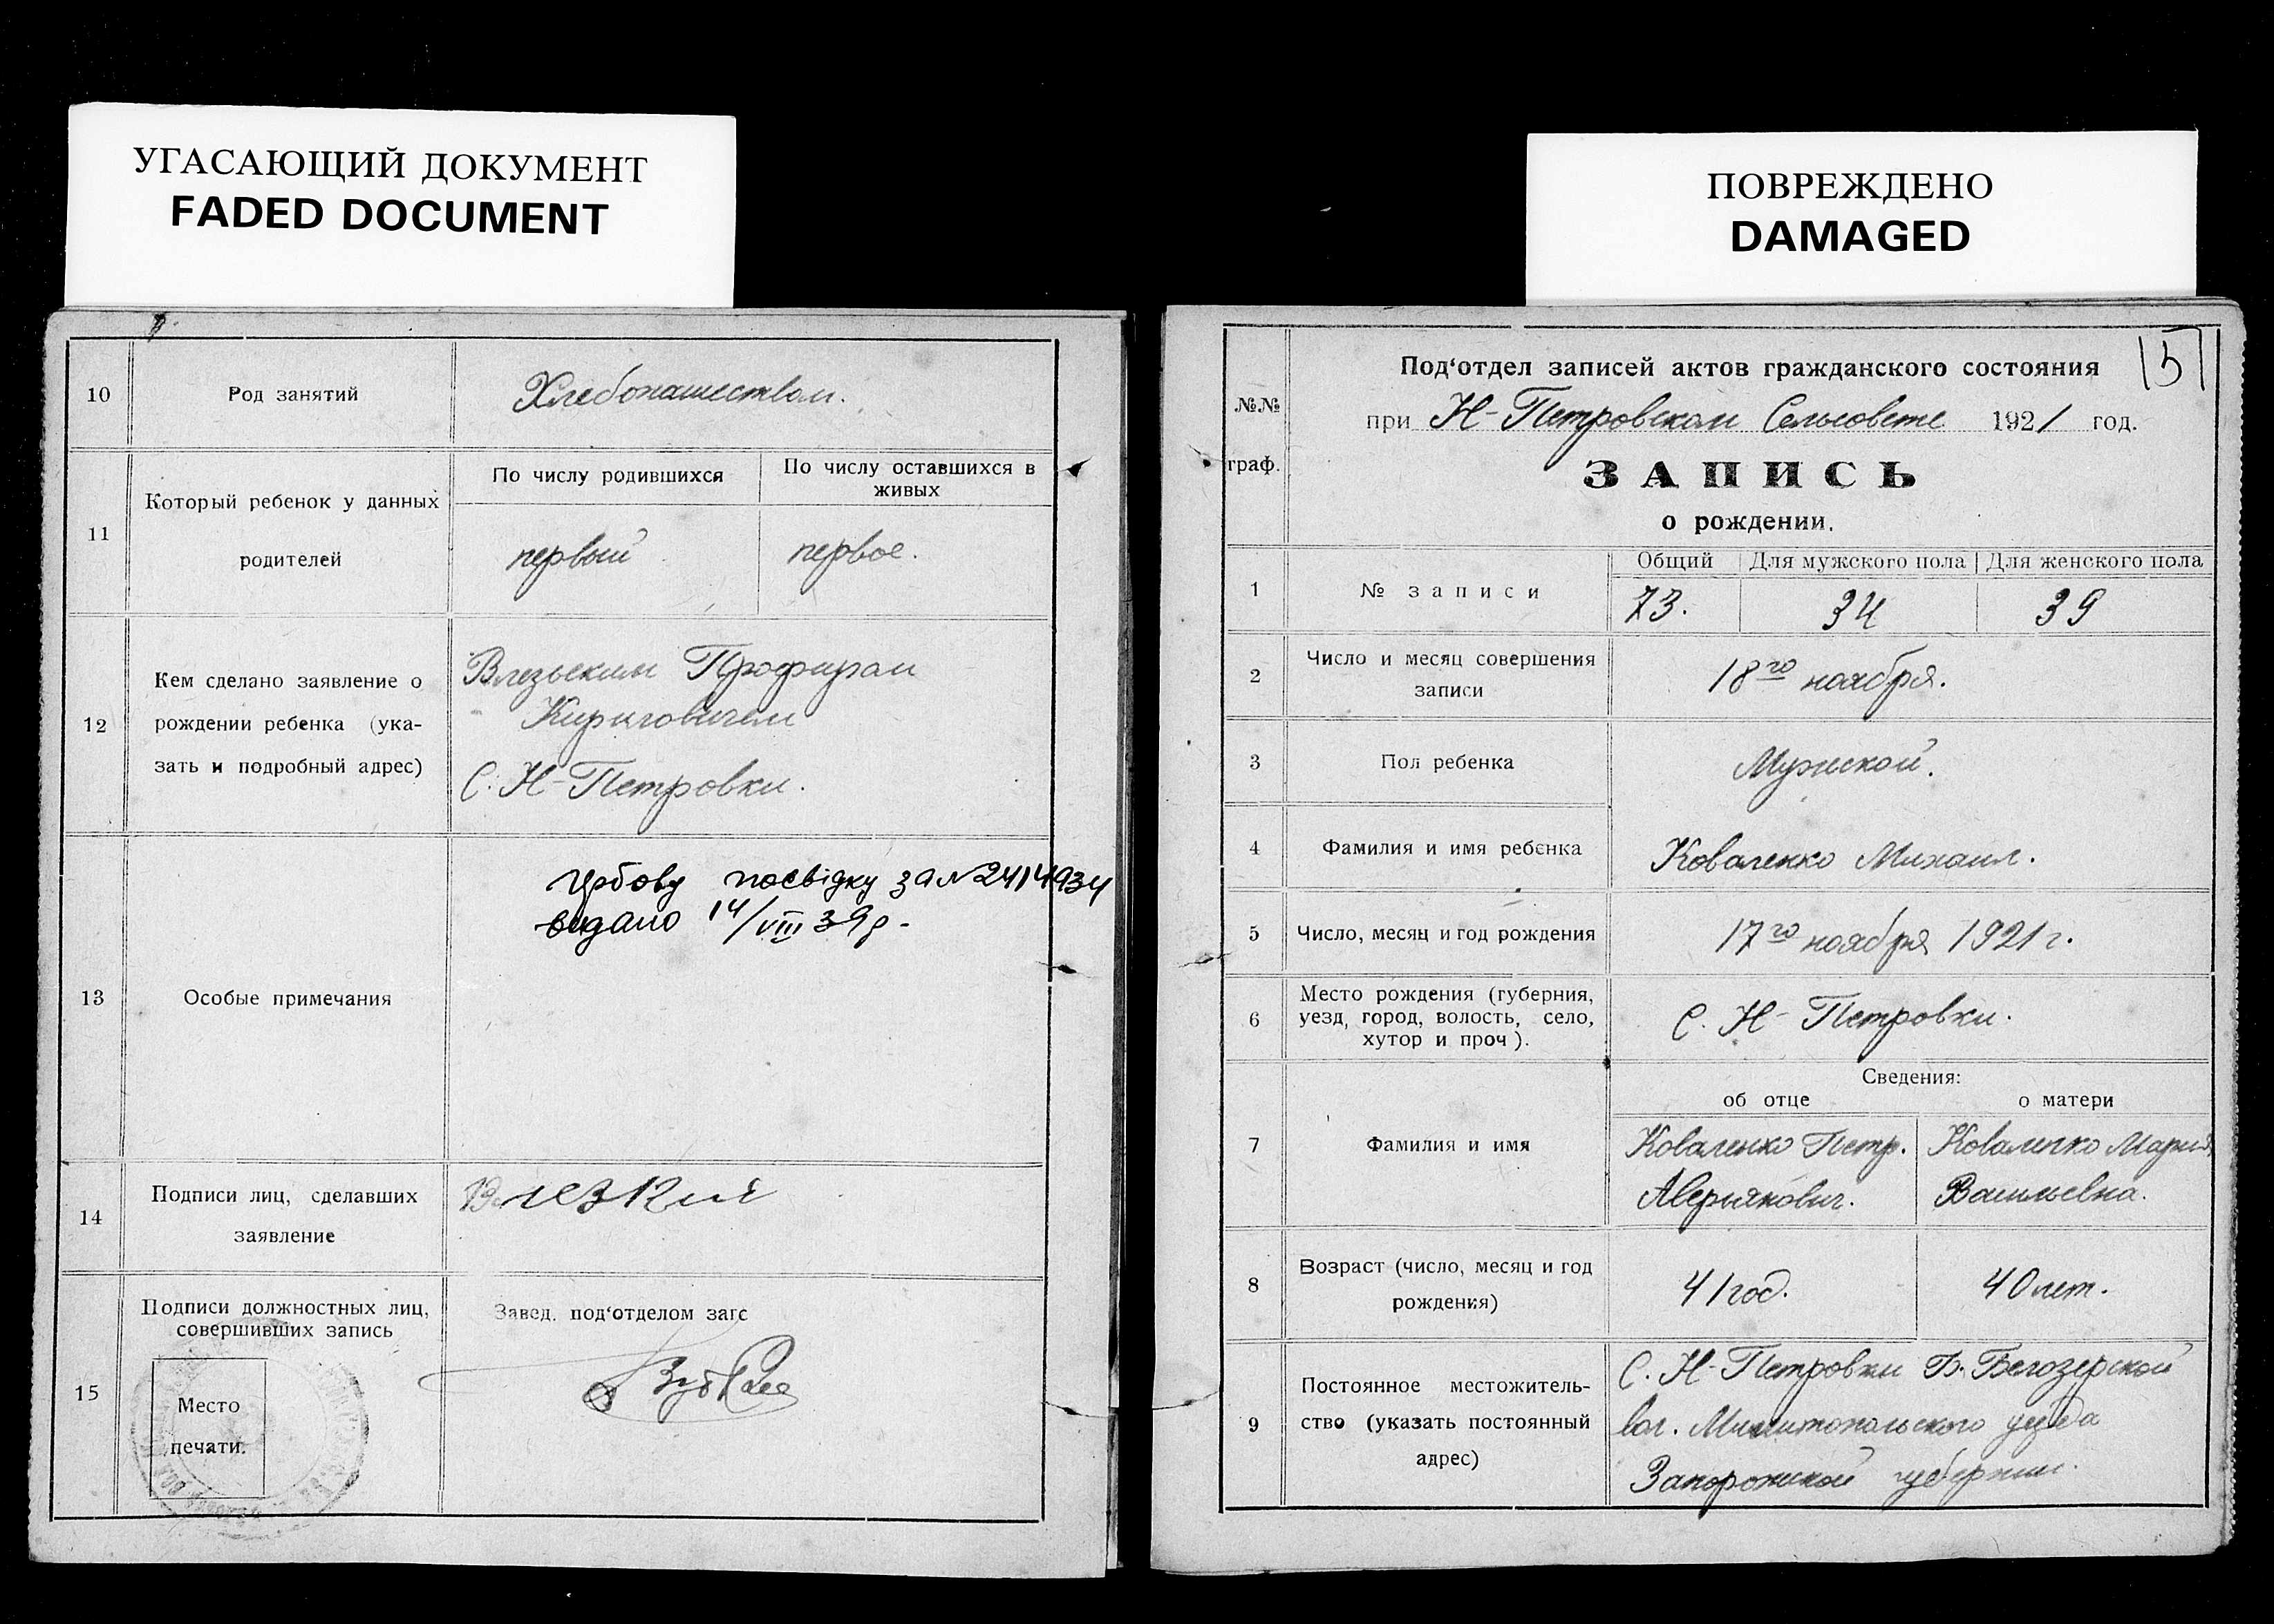 УГАСАЮЩИЙ ДОКУМЕНТ
FADED DOCUMENT
10
Род занятий
Хлебопашеством.
11
Который ребенок у данных
родителей
По числу родившихся
По числу оставшихся в
живых
первый
первое.
12
Кем сделано заявление о
рождении ребенка (ука-
зать и подробный адрес)
Влезьким Профиром
Кириловичем
С. Н-Петровки.
13
Особые примечания
гербову посвідку за № 2414934
видано 14/VIII 39р-
14
Подписи лиц, сделавших
заявление
Влезкий
15
Подписи должностных лиц,
совершивших запись
Место
печати.
Завед. под‘отделом загс
ПОВРЕЖДЕНО
DAMAGED
15
№№
граф.
Под‘отдел записей актов гражданского состояния
при Н-Петровском Сельсовете 1921 год.
ЗАПИСЬ
о рождении.
1
№ записи
Общий
Для мужского пола
Для женского пола
73.
34
39
2
Число и месяц совершения
записи
18го ноября.
3
Пол ребенка
Мужской.
4
Фамилия и имя ребенка
Коваленко Михаил.
5
Число, месяц и год рождения
17го ноября 1921 г.
6
Место рождения (губерния,
уезд, город, волость, село,
хутор и проч).
С. Н-Петровки.
Сведения:
об отце
о матери
7
Фамилия и имя
Коваленко Петр.
Аверьянович.
Коваленко Мария
Васильевна.
8
Возраст (число, месяц и год
рождения)
41 год.
40 лет.
9
Постоянное местожитель-
ство (указать постоянный
адрес)
С. Н-Петровки Б. Белозерской
вол. Мелитопольского уезда
Запорожской губернии.